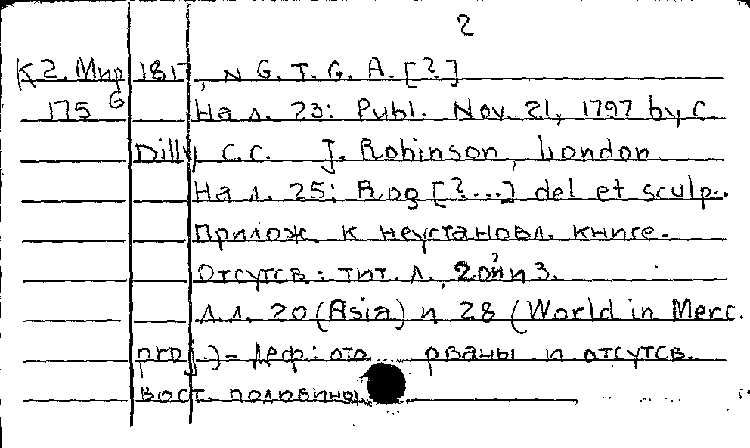 2
К 2. Мир 1817, N G. T. G. A. [?]
175 б На л. 23: Publ. Nov. 21, 1797 by C.
Dilly, C.C. J. Robinson, London
На л. 25: Rog [?...] del et sculp.
Прилож. к неустановл. книге.
Отсутсв.: тит. л., 2 3.
Л.л. 20 (Asia) и 28 (World in Merc.
proj.) - деф.: рваны и отсутсв.
вост. половины